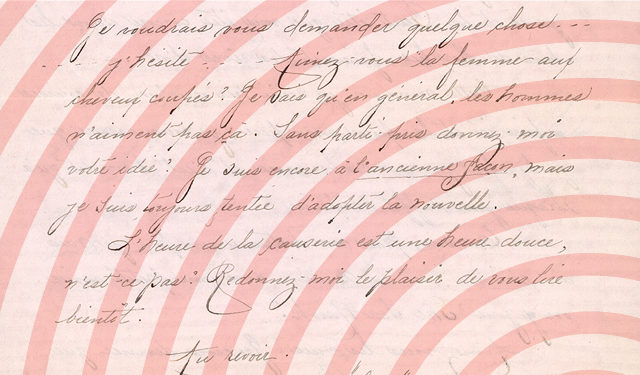 Je voudrais vous demander quelque chose ...
... j'hésite ... Aimez-vous la femme aux
cheveux coupés? Je sais qu'en général, les hommes
n'aiment pas ça. Sans parti-pris donnez-moi
votre idée? Je suis encore à l'ancienne façon, mais
je suis toujours tentée d'adopter la nouvelle.
L'heure de la causerie est une heure douce,
n'est-ce pas? Redonnez-moi le plaisir de vous lire
bientôt.
Au revoir.